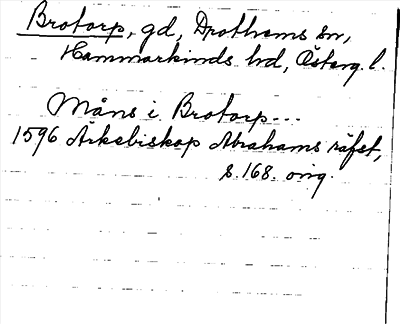 Brotorp, gd, Drothems sn,
Hammarkinds hd, Österg. l.
Måns i Brotorp...
1596 Ärkebiskop Abrahams räfst,
s. 168. orig.